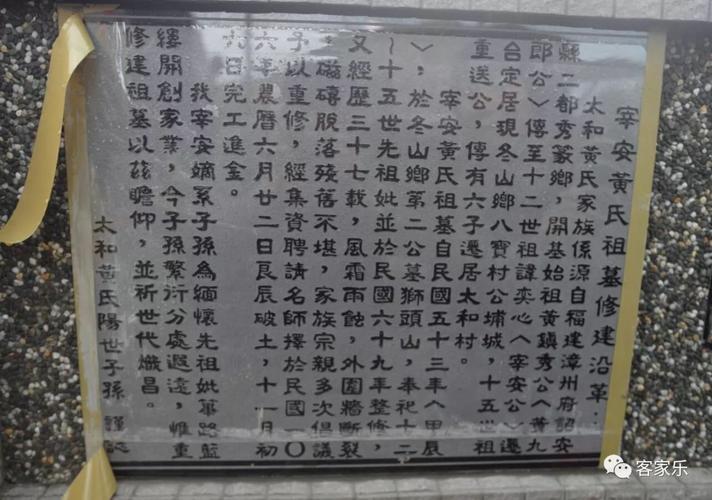 宰安黃氏祖墓修建沿革：
太和黃氏家族係源自福建漳州府詔安
縣二都秀篆鄉，開基始祖黃鎮秀公〈黃九
郎公〉傳至十二世祖諱奕心〈宰安公〉遷
台定居現冬山鄉八寶村公埔城，十五世祖
重送公，傳有六子遷居太和村。
宰安黃氏祖墓自民國五十三年〈甲辰
〉，於冬山鄉第二公墓獅頭山，奉祀十二
～十五世先祖妣並於民國六十九年整修，
又經歷三十七載，風霜雨蝕，外圍牆斷裂
，磁磚脫落殘舊不堪，家族宗親多次倡議
予以重修，經集資聘請名師擇於民國一〇
六年農曆六月廿二日良辰破土，十一月初
六日完工進金。
我宰安嫡系子孫為緬懷先祖妣篳路藍
縷開創家業，今子孫繁衍分處遐遠，惟重
修建祖墓以茲瞻仰，並祈世代熾昌。
太和黃氏陽世子孫 謹誌
客家乐